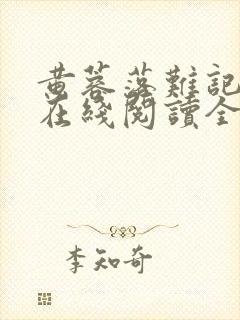 黄蓉落難記
在綫閱讀全
李知奇